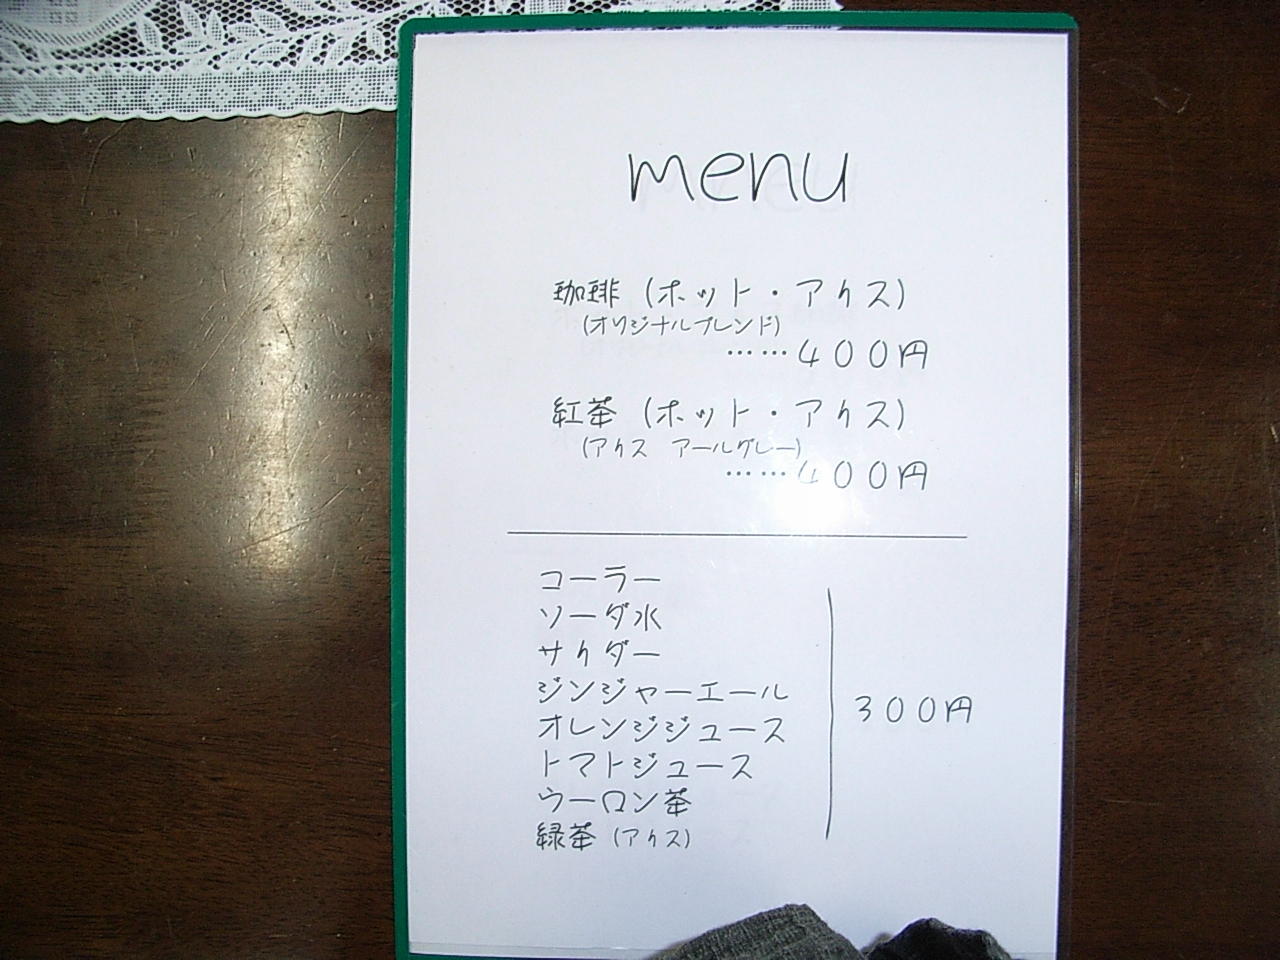 menu
珈琲（ホット・アイス）
（オリジナルブレンド）
……４００円
紅茶（ホット・アイス）
（アイス　アールグレー）
……４００円
コーラー
ソーダ水
サイダー
ジンジャーエール
オレンジジュース
トマトジュース
ウーロン茶
緑茶（アイス）
３００円